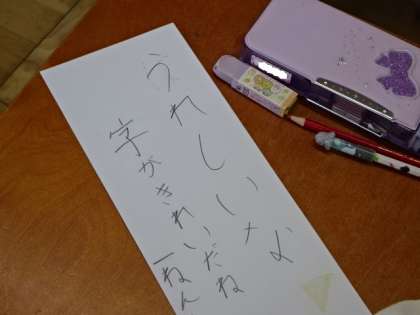 うれしいな
字がきれいだね
一ねん